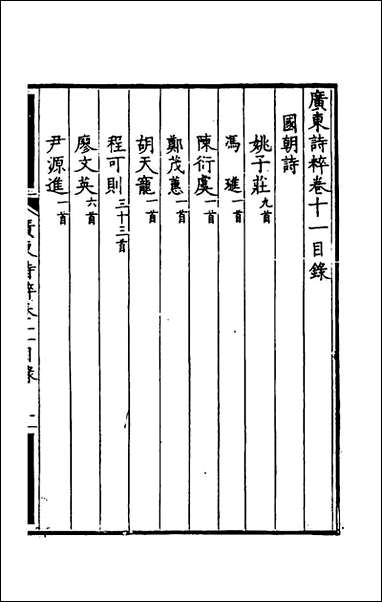 廣東詩粹卷十一目錄
國朝詩
姚子莊九首
馮璡一首
陳衍虞一首
鄭茂蕙一首
胡天寵一首
程可則三十三首
廖文英六首
尹源進一首